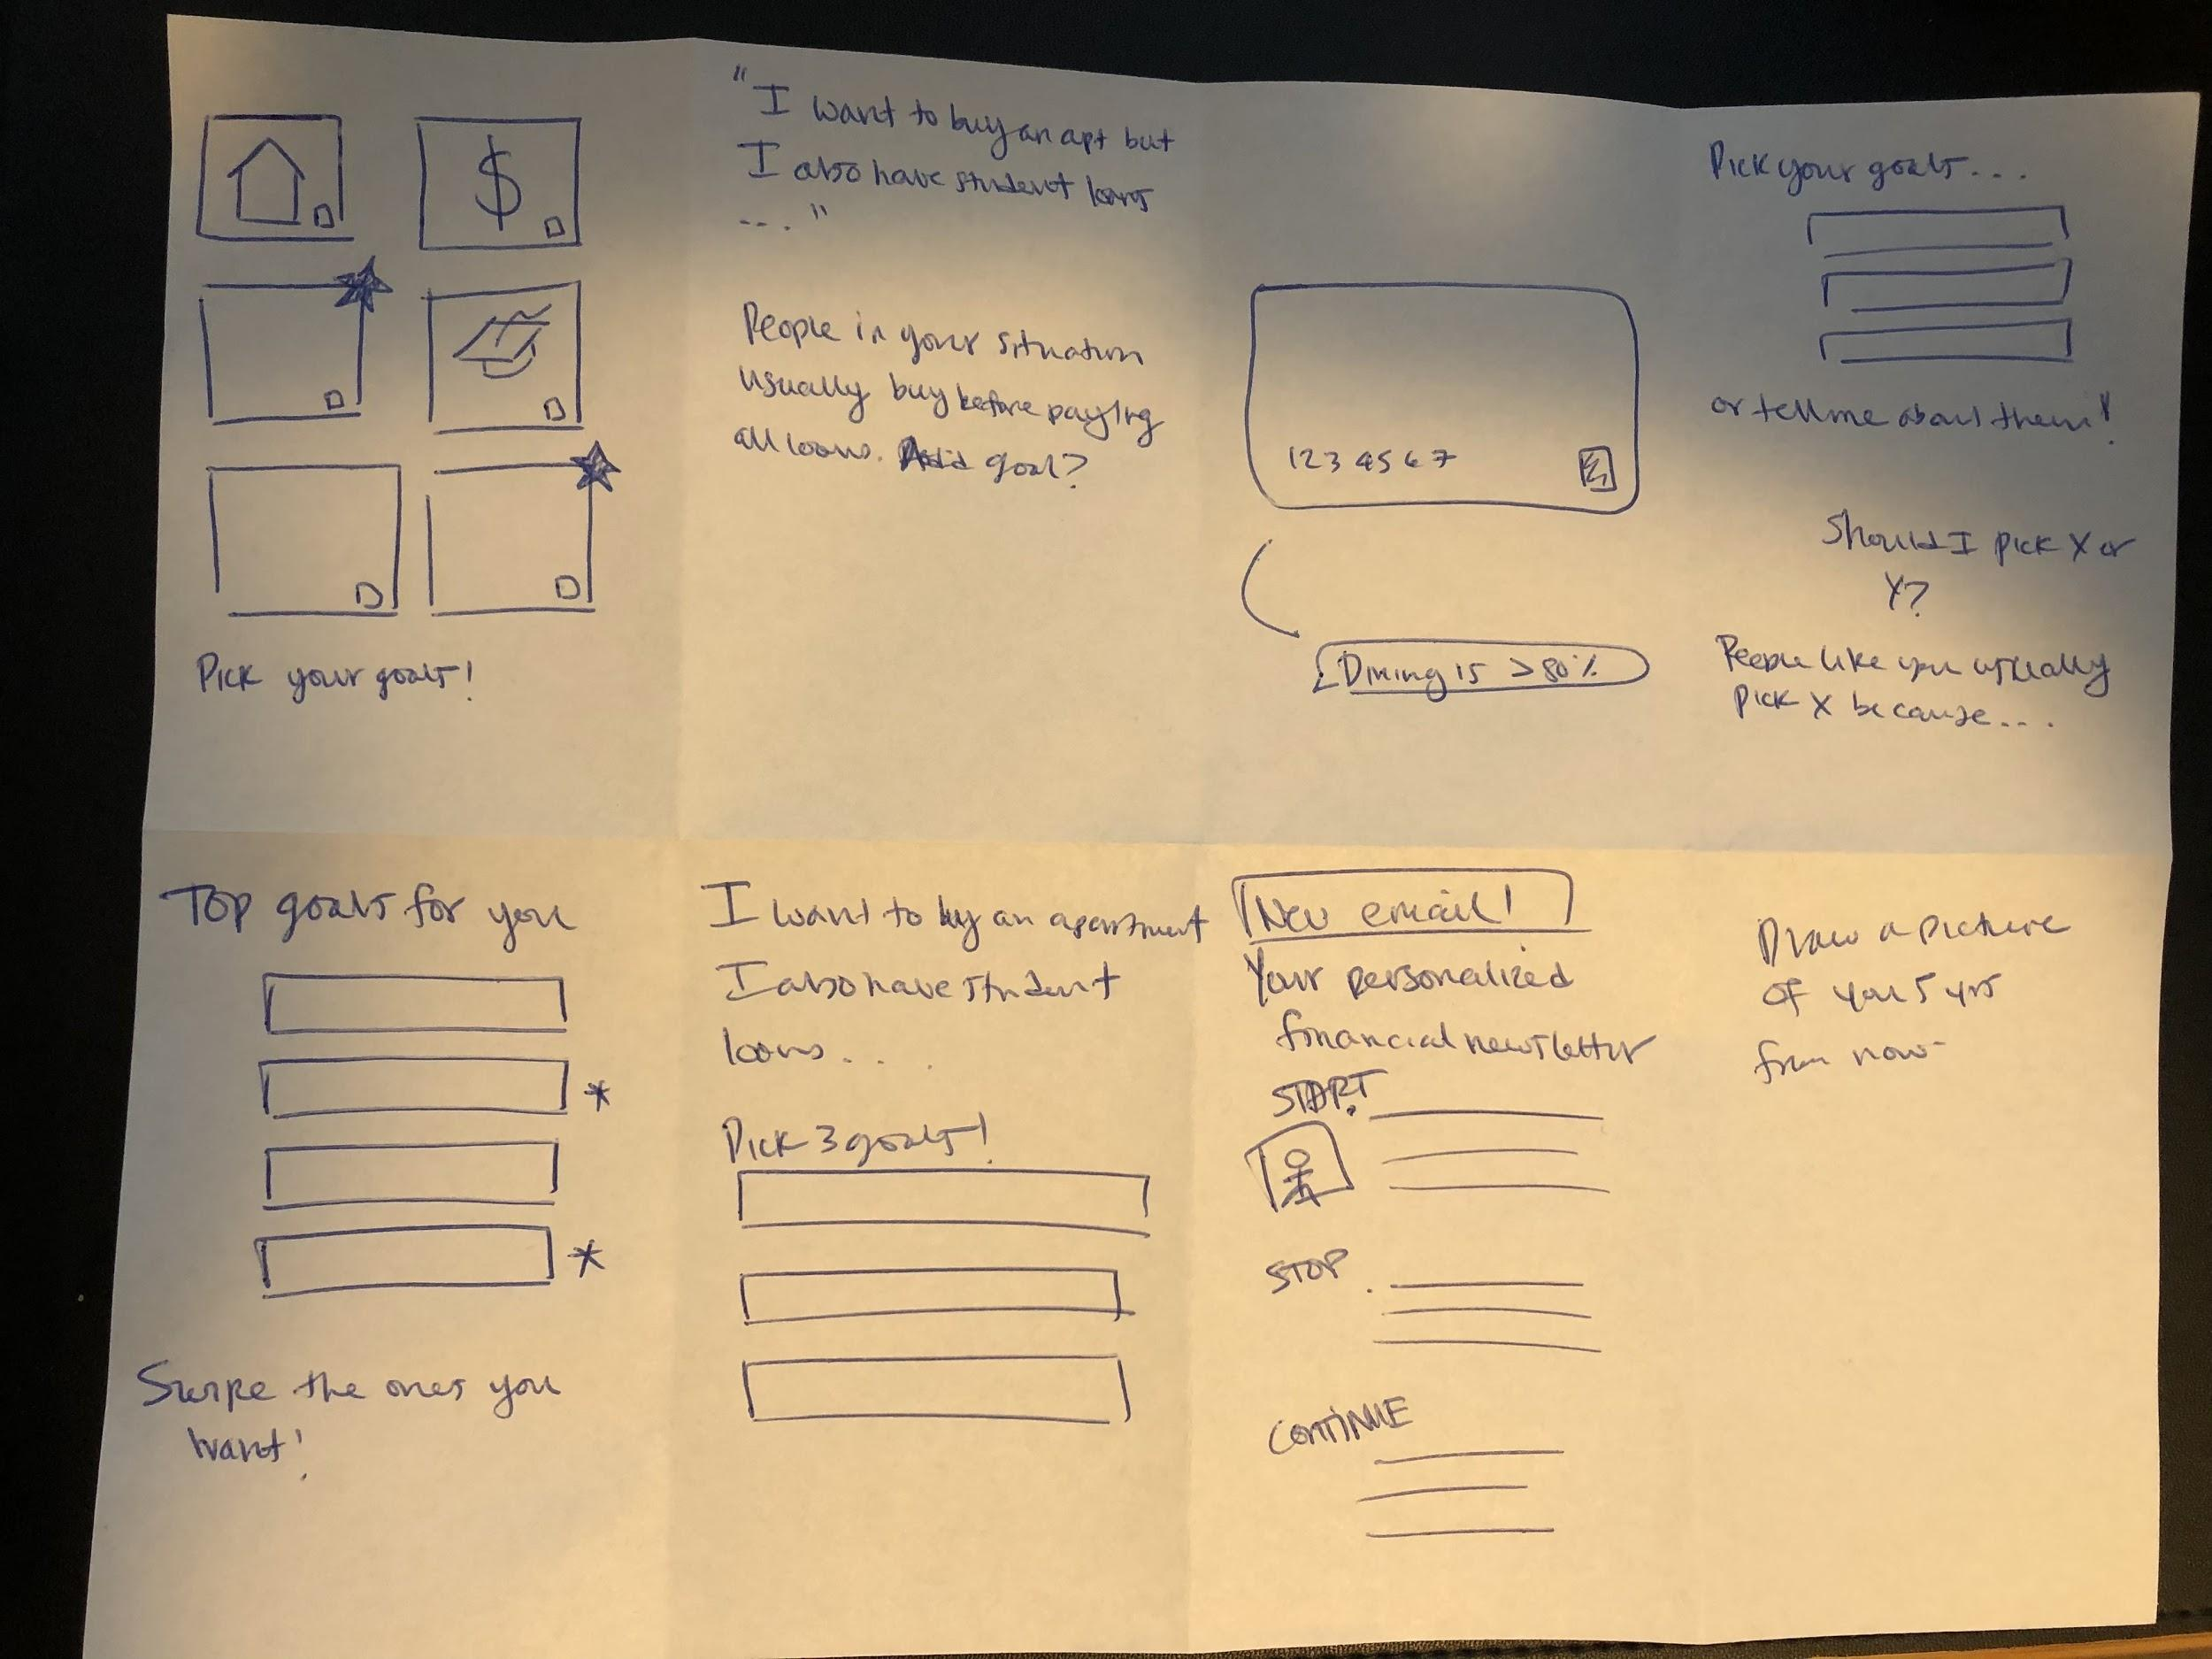 $
Pick your goals!
"I want to buy an apt but
I also have student loans
...."
People in your situation
usually buy before paying
all loans. Add goal?
1234567
Dining is >80%
Pick your goals...
or tell me about them!
Should I pick X or
Y?
People like you usually
pick X because....
Top goals for you
*
*
Swipe the ones you
want!
I want to buy an apartment
I also have student
loans....
Pick 3 goals!
New email!
Your personalized
financial newsletter
START
STOP
CONTINUE
Draw a picture
of you 5 yrs
from now